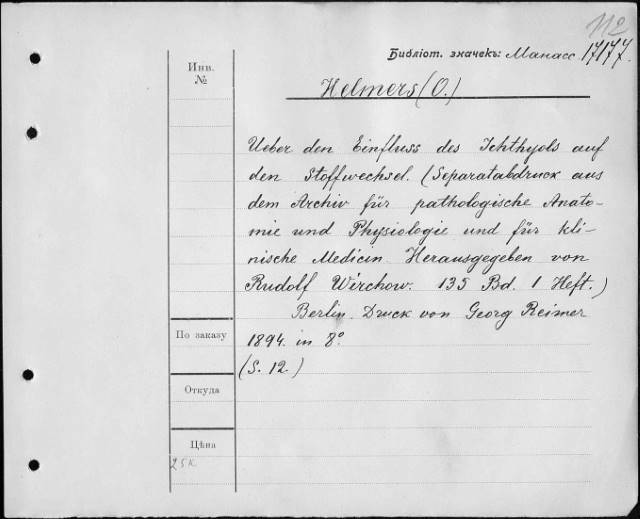 112
Библіот. значекъ: Манасс 17177.
Инв.
№
Helmers (O.)
Ueber den Einfluss des Ichthyols auf
den Stoffwechsel. (Separatabdruck aus
dem Archiv für pathologische Anato-
mie und Physiologie und für kli-
nische Medicin. Herausgegeben von
Rudolf Wirchow. 135 Bd. 1 Heft.)
Berlin. Druck von Georg Reimer
По заказу
1894. in 8°.
(S. 12.)
Откуда
Цѣна
25 к.